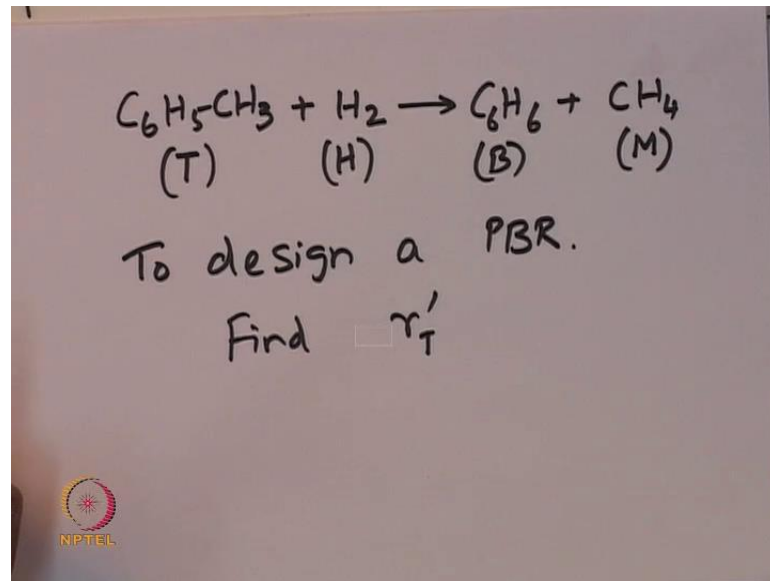 C₆H₅-CH₃ + H₂ → C₆H₆ + CH₄
(T) (H) (B) (M)
To design a PBR.
Find r'_T
NPTEL